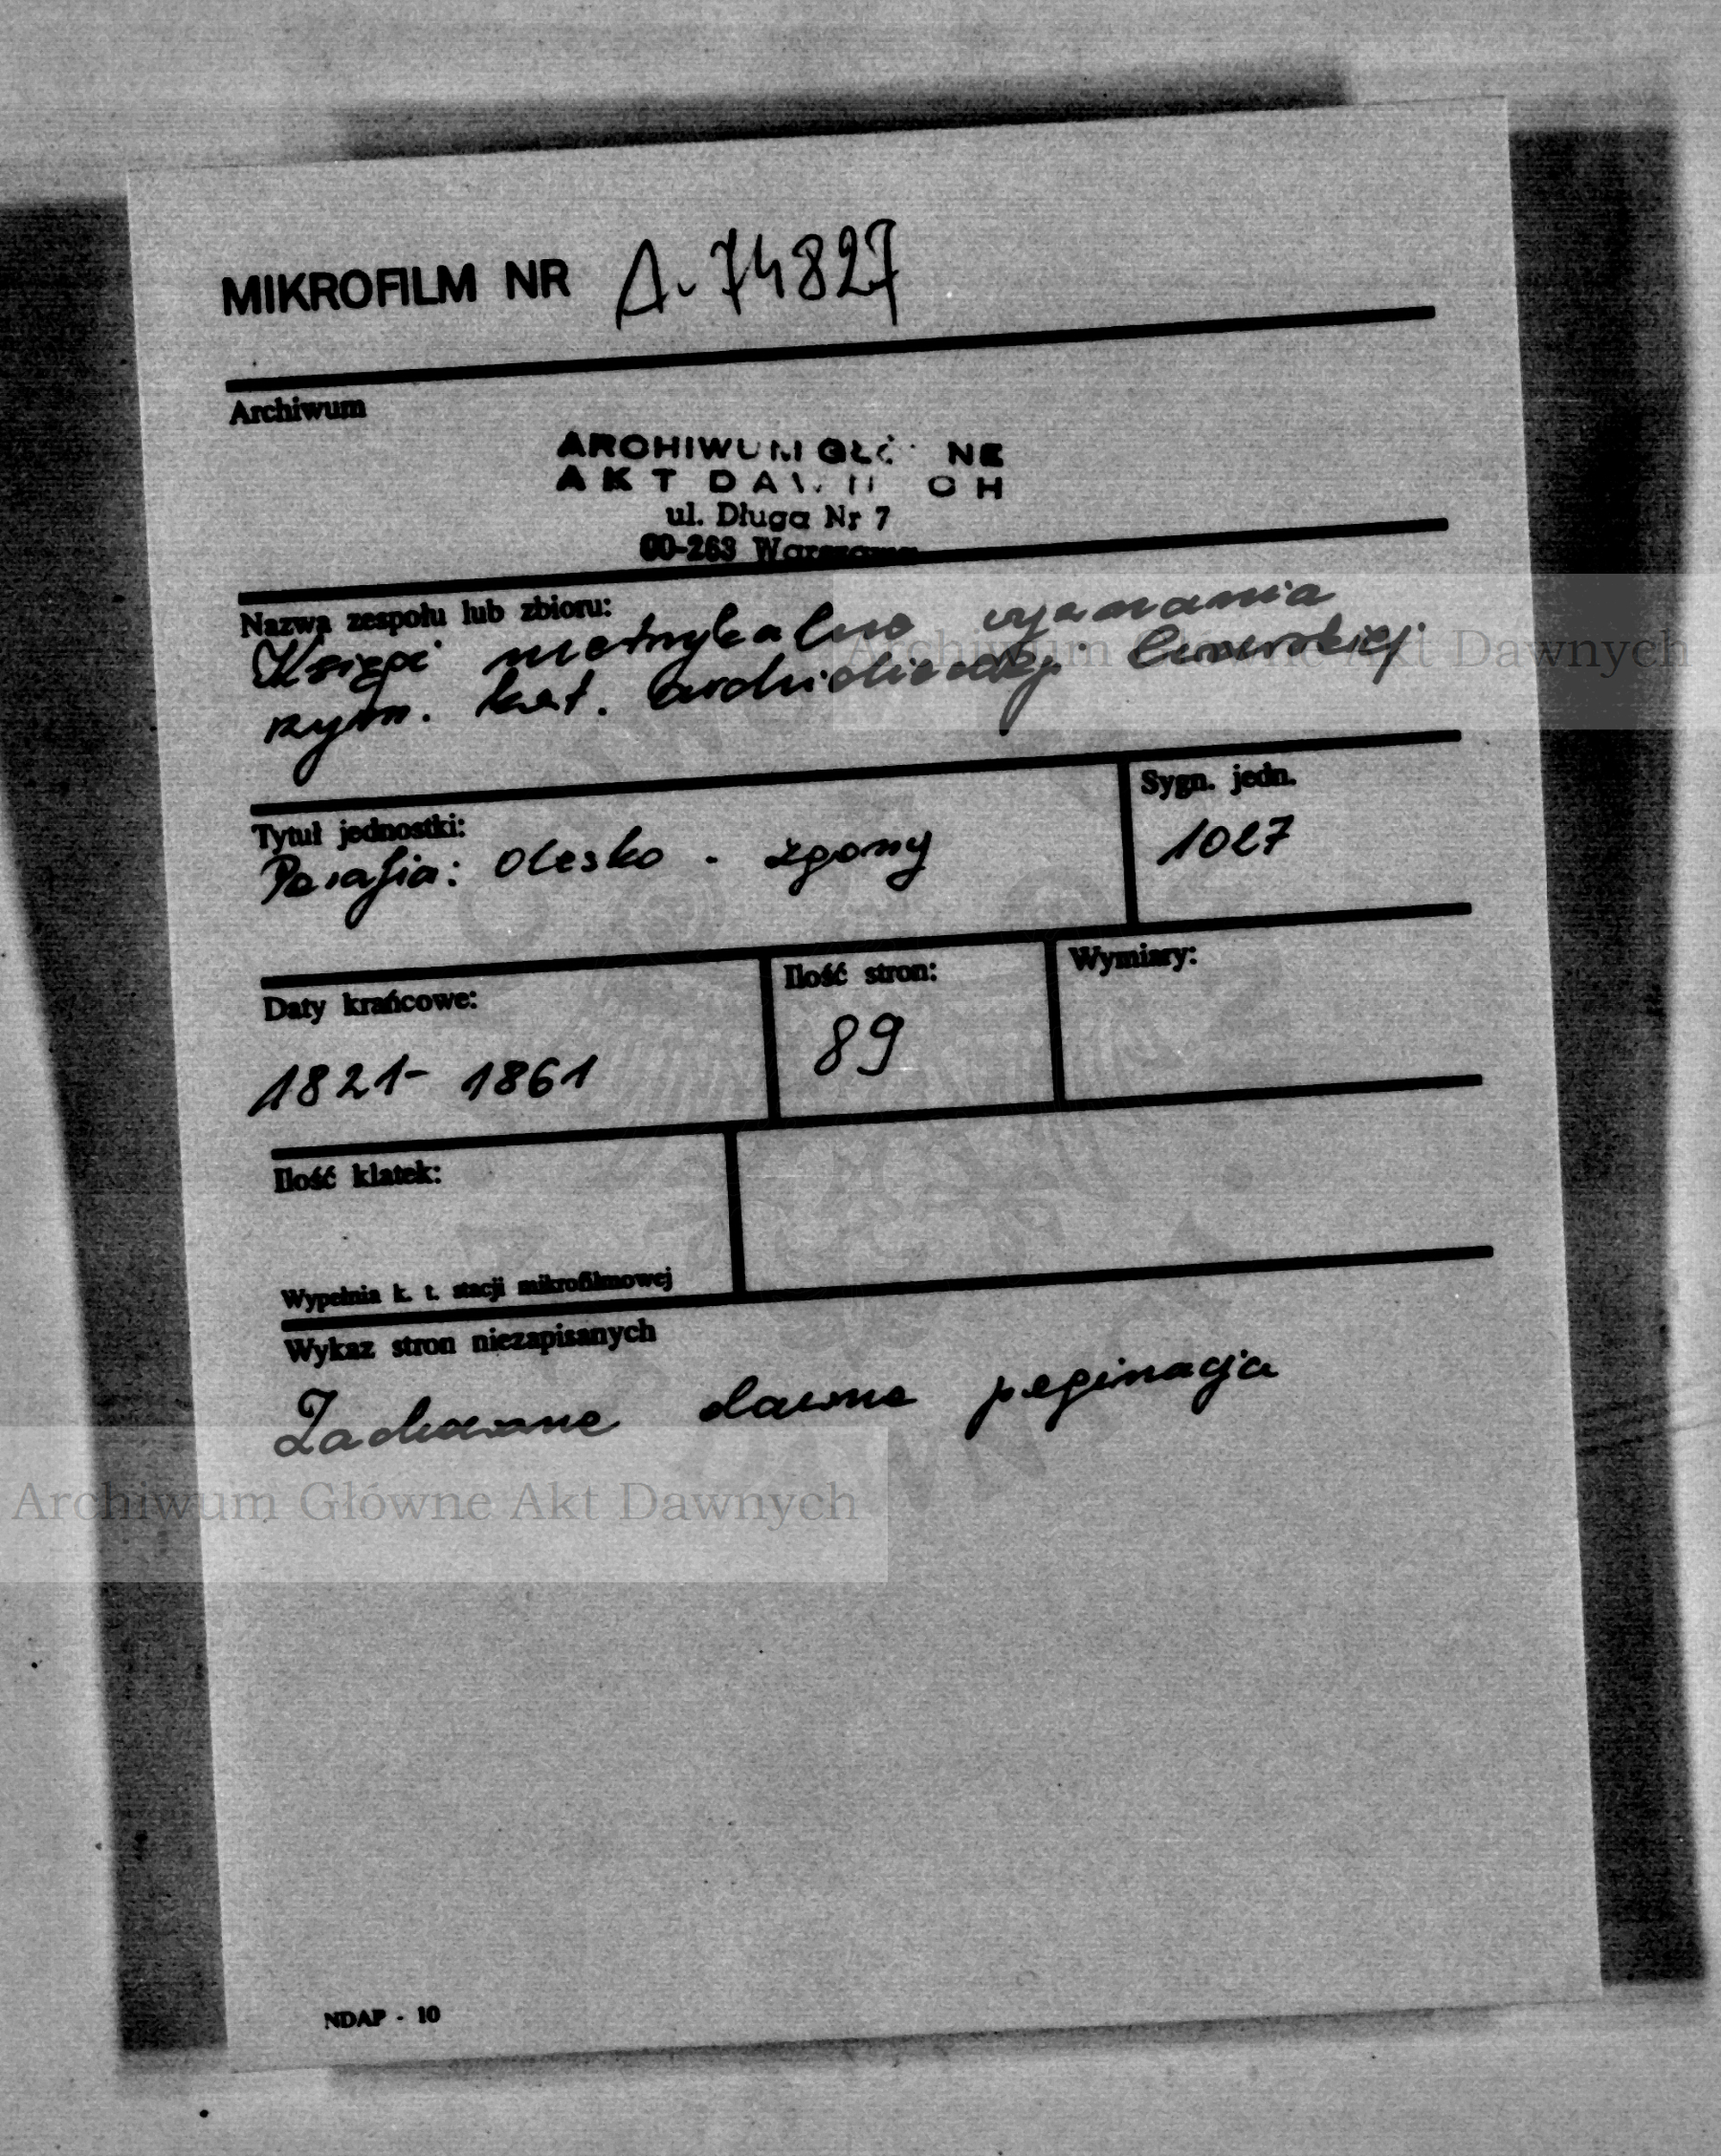 MIKROFILM NR A-74827
Archiwum
ARCHIWUM GŁÓWNE
AKT DAWNYCH
ul. Długa Nr 7
00-263 Warszawa
Nazwa zespołu lub zbioru:
Księgi metrykalne wyznania
rzym. kat. archidiecezji lwowskiej
Archiwum Główne Akt Dawnych
Tytuł jednostki:
Parafia: Olesko - zgony
Sygn. jedn.
1027
Daty krańcowe:
1821- 1861
Ilość stron:
89
Wymiary:
Ilość klatek:
Wypełnia k. t. stacji mikrofilmowej
Wykaz stron niezapisanych
Zachowano dawną paginację
Archiwum Główne Akt Dawnych
NDAP - 10